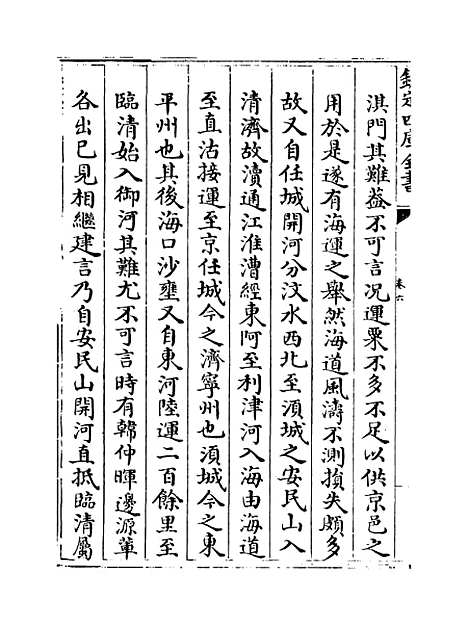 欽定四庫全書
卷六
淇門其難蓋不可言况運粟不多不足以供京邑之
用於是遂有海運之舉然海道風濤不測損失頗多
故又自任城開河分汶水西北至須城之安民山入
清濟故瀆通江淮漕經東阿至利津河入海由海道
至直沽接運至京任城今之濟寧州也須城今之東
平州也其後海口沙壅又自東河陸運二百餘里至
臨清始入御河其難尤不可言時有韓仲暉邊源軰
各出已見相繼建言乃自安民山開河直抵臨清屬